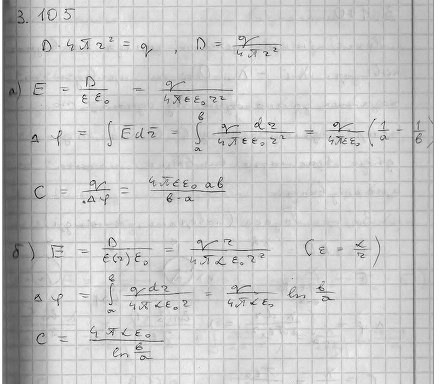 3.105
D · 4πr² = q , D = q/4πr²
а) E = D/εε₀ = q/4πεε₀r²
Δφ = ∫ E̅dr̅ = ∫ₐᵇ q dr/4πεε₀r² = q/4πεε₀ (1/a - 1/b)
C = q/Δφ = 4πεε₀ab/b-a
б) E = D/ε(r)ε₀ = q r/4παε₀r² (ε = α/r)
Δφ = ∫ₐᵇ qdr/4παε₀r = q/4παε₀ ln b/a
C = 4παε₀/ln b/a